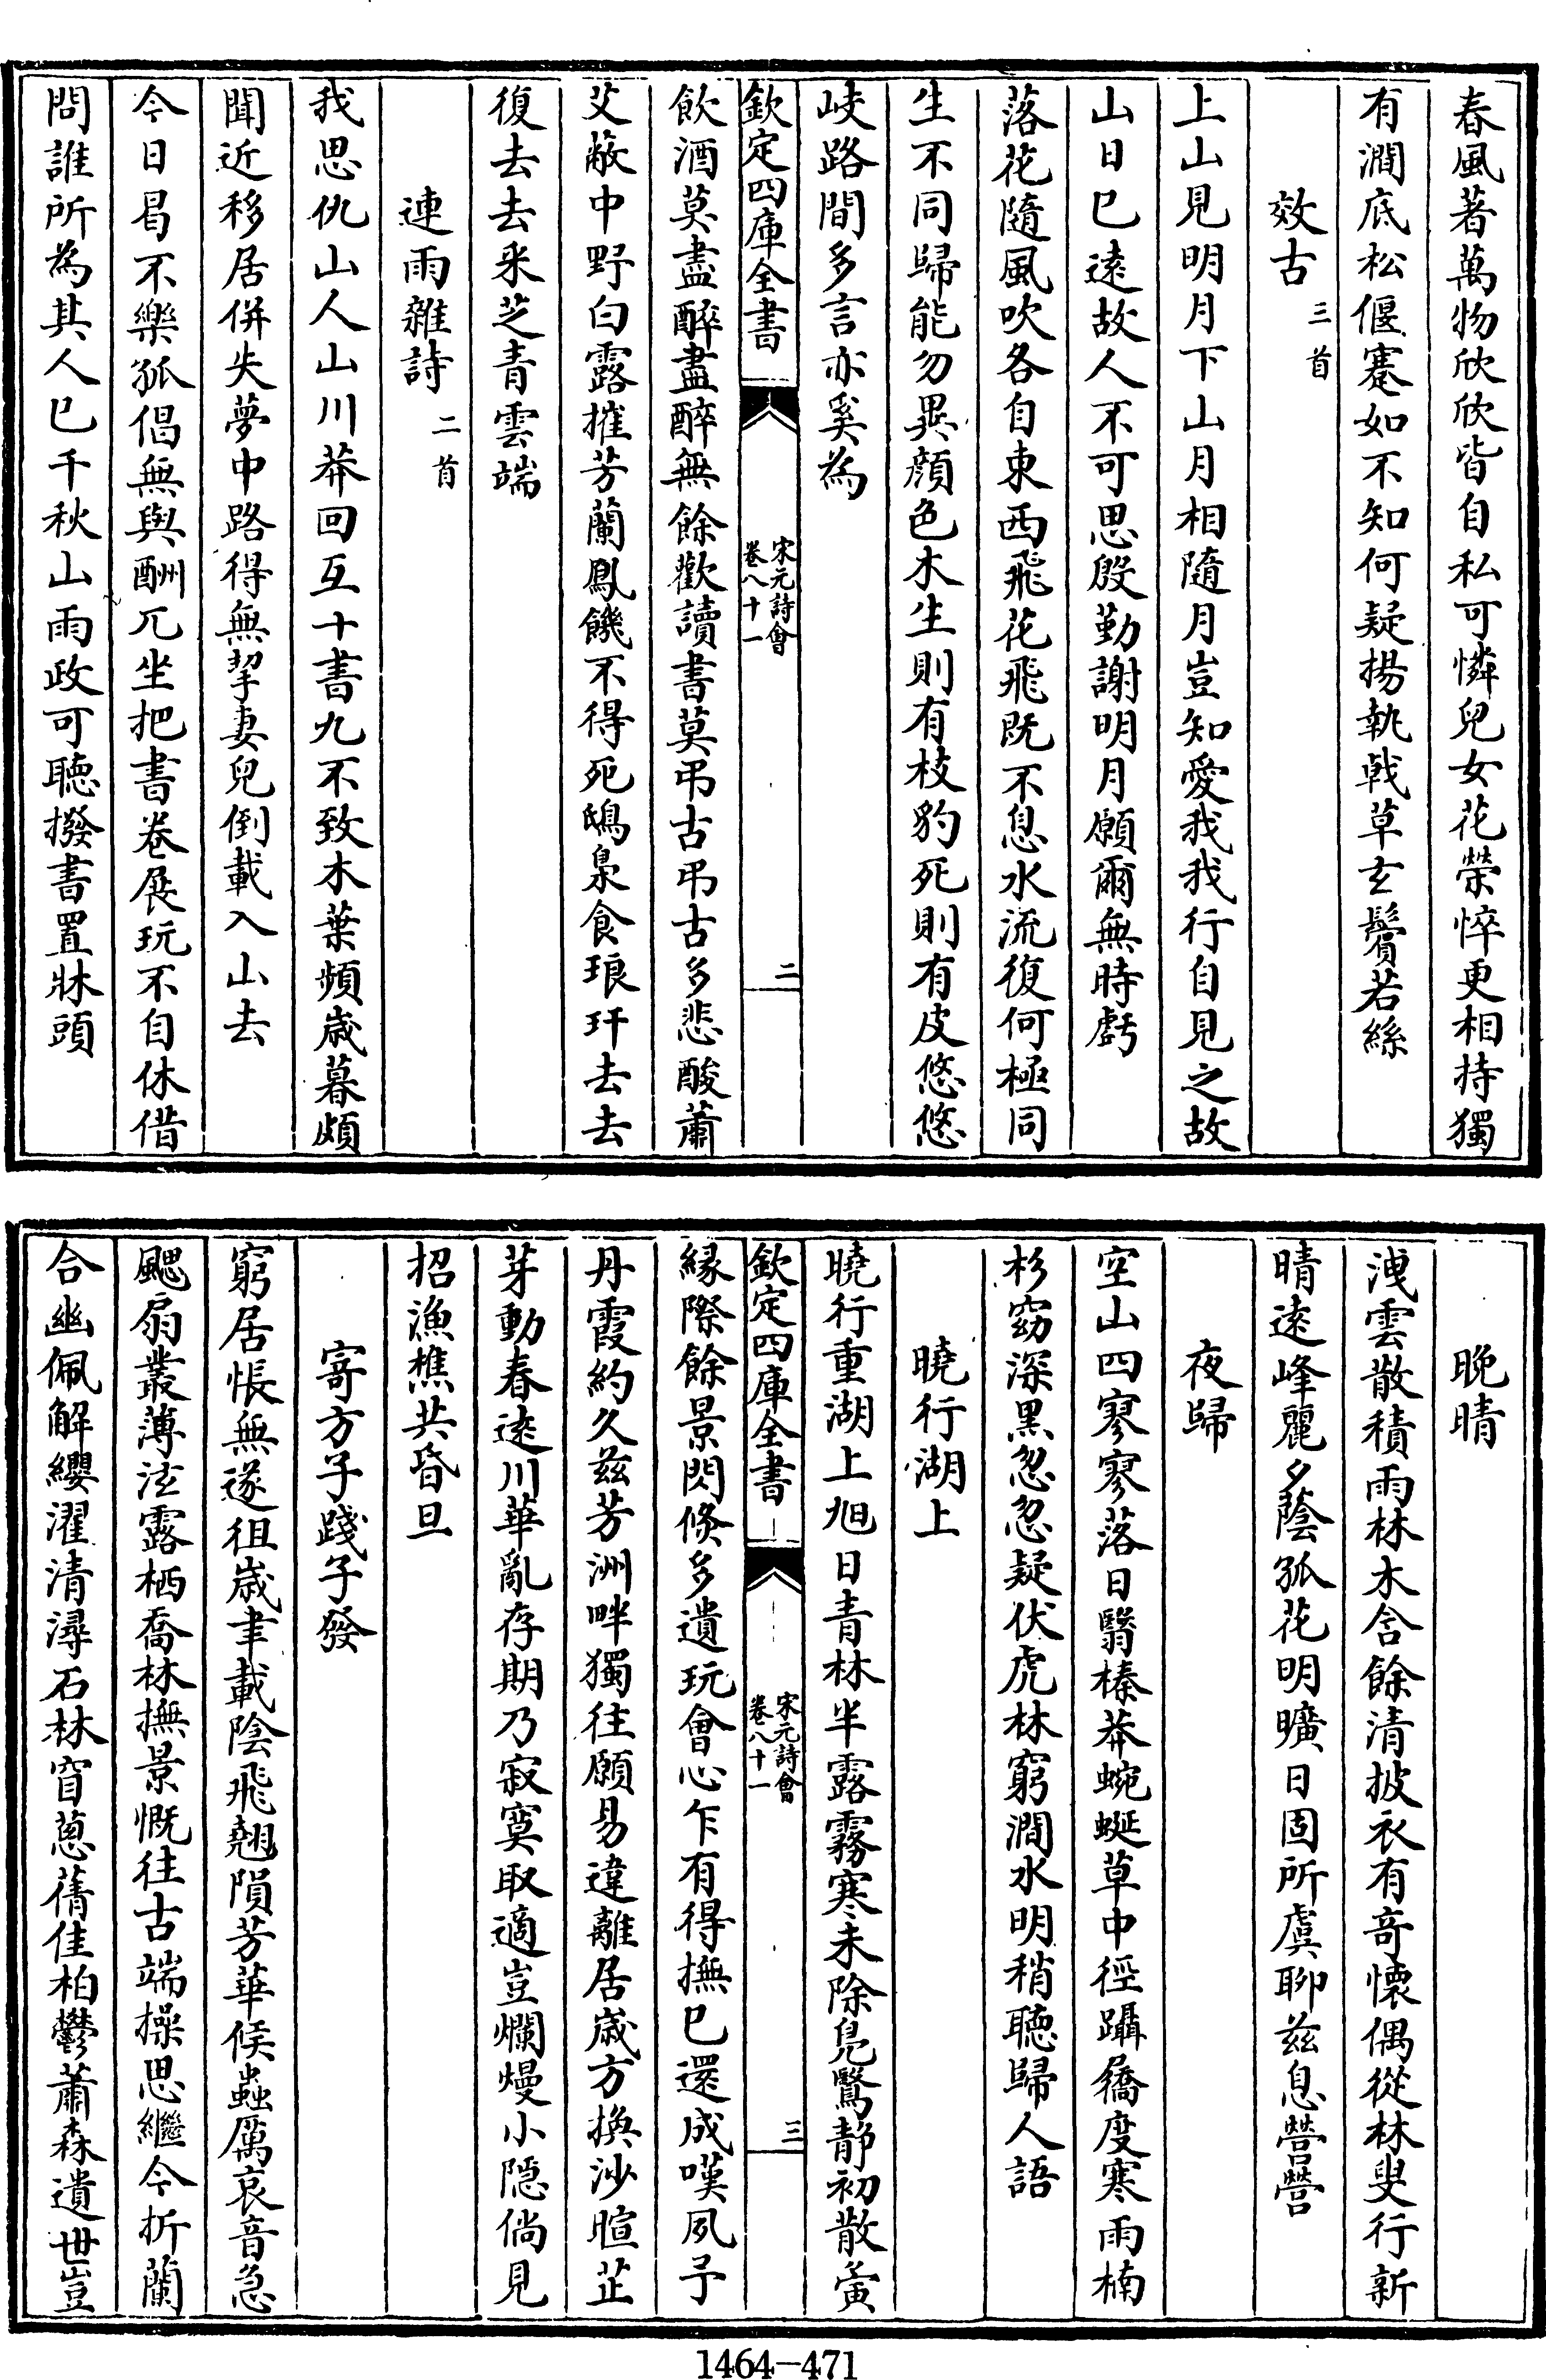 春風著萬物欣欣皆自私可憐兒女花榮悴更相持獨
有澗底松偃蹇如不知何疑揚執戟草玄鬢若絲
效古三首
上山見明月下山月相隨月豈知愛我我行自見之故
山日已遠故人不可思殷勤謝明月願爾無時虧
落花隨風吹各自東西飛花飛既不息水流復何極同
生不同歸能勿異顔色木生則有枝豹死則有皮悠悠
岐路間多言亦奚為
欽定四庫全書
宋元詩會
卷八十一
二
飲酒莫盡醉盡醉無餘歡讀書莫弔古弔古多悲酸蕭
艾蔽中野白露摧芳蘭鳳饑不得死鴟梟食琅玕去去
復去去采芝青雲端
連雨雜詩二首
我思仇山人山川莽回互十書九不致木葉頻歳暮頗
聞近移居併失夢中路得無挈妻兒倒載入山去
今日曷不樂孤倡無與酬兀坐把書卷展玩不自休借
問誰所為其人已千秋山雨政可聴撥書置牀頭
晚晴
洩雲散積雨林木含餘清披衣有奇懷偶從林叟行新
晴遠峰麗夕蔭孤花明曠日固所虞聊兹息營營
夜歸
空山四寥寥落日翳榛莽蜿蜒草中徑躡屩度寒雨楠
杉窈深黒忽忽疑伏虎林窮澗水明稍聴歸人語
曉行湖上
曉行重湖上旭日青林半露霧寒未除鳧鷖静初散夤
縁際餘景閃倐多遺玩會心乍有得撫已還成嘆夙予
丹霞約久兹芳洲畔獨往願易違離居歳方換沙暄芷
芽動春遠川華亂存期乃寂寞取適豈爛熳小隠倘見
招漁樵共昏旦
寄方子踐子發
窮居悵無遂徂歳聿載陰飛翹隕芳華候蟲厲哀音急
颸扇叢薄泫露栖喬林撫景慨往古端操思繼今折蘭
合幽佩解纓濯清潯石林窅蔥蒨佳柏鬱蕭森遺世豈
1464-471